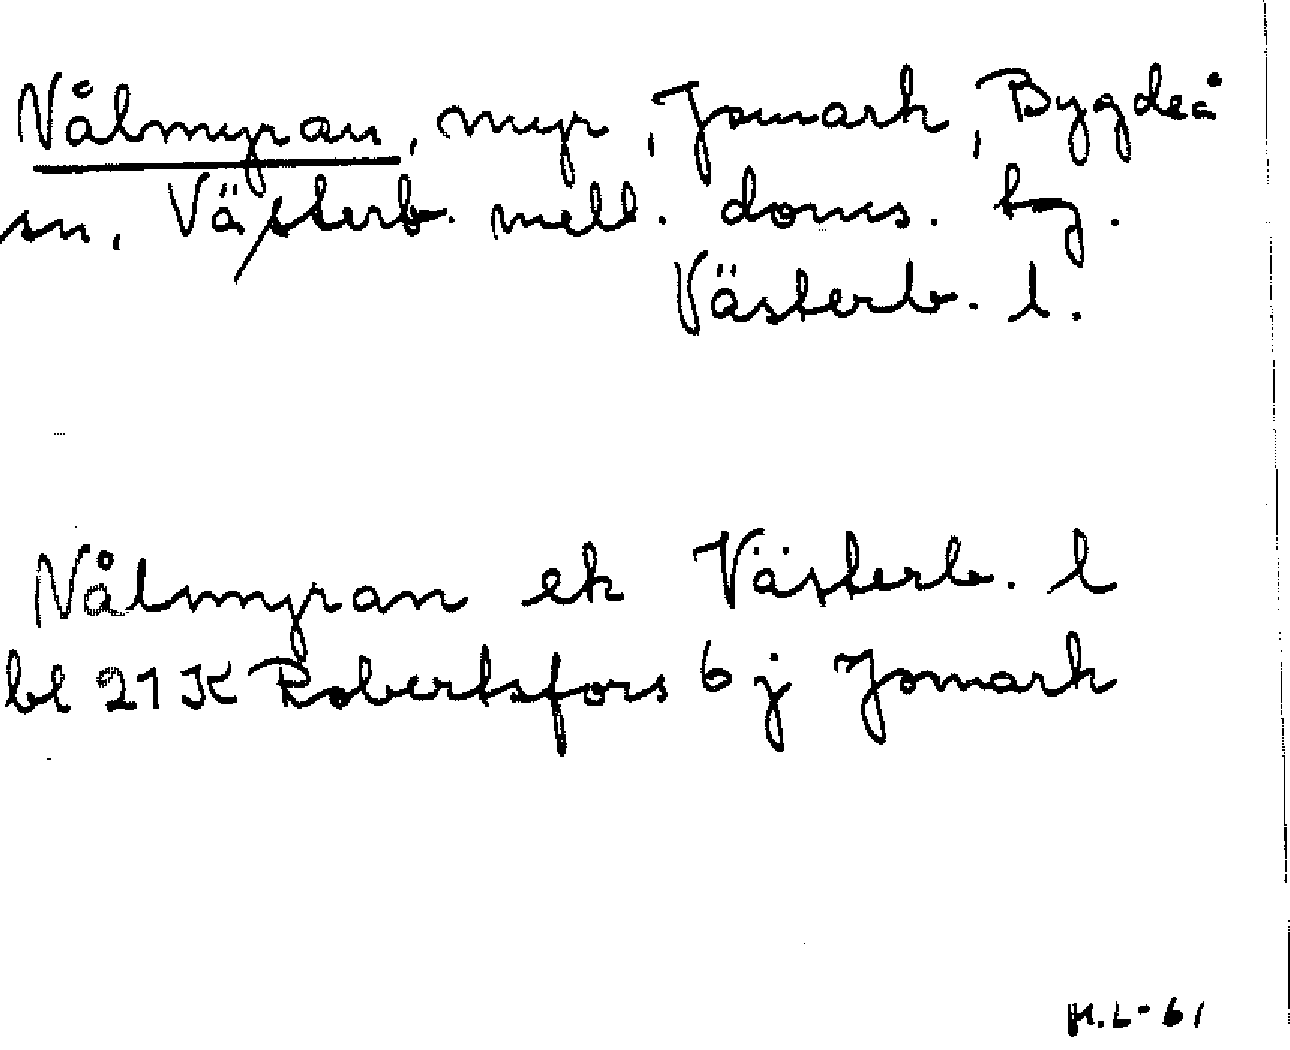 Nålmyran, myr, Jomark, Bygdeå
sn, Västerb. mell. doms. tg.
Västerb. l.
Nålmyran ek Västerb. l
bl 21 K Robertsfors 6 j Jomark
H.L-61